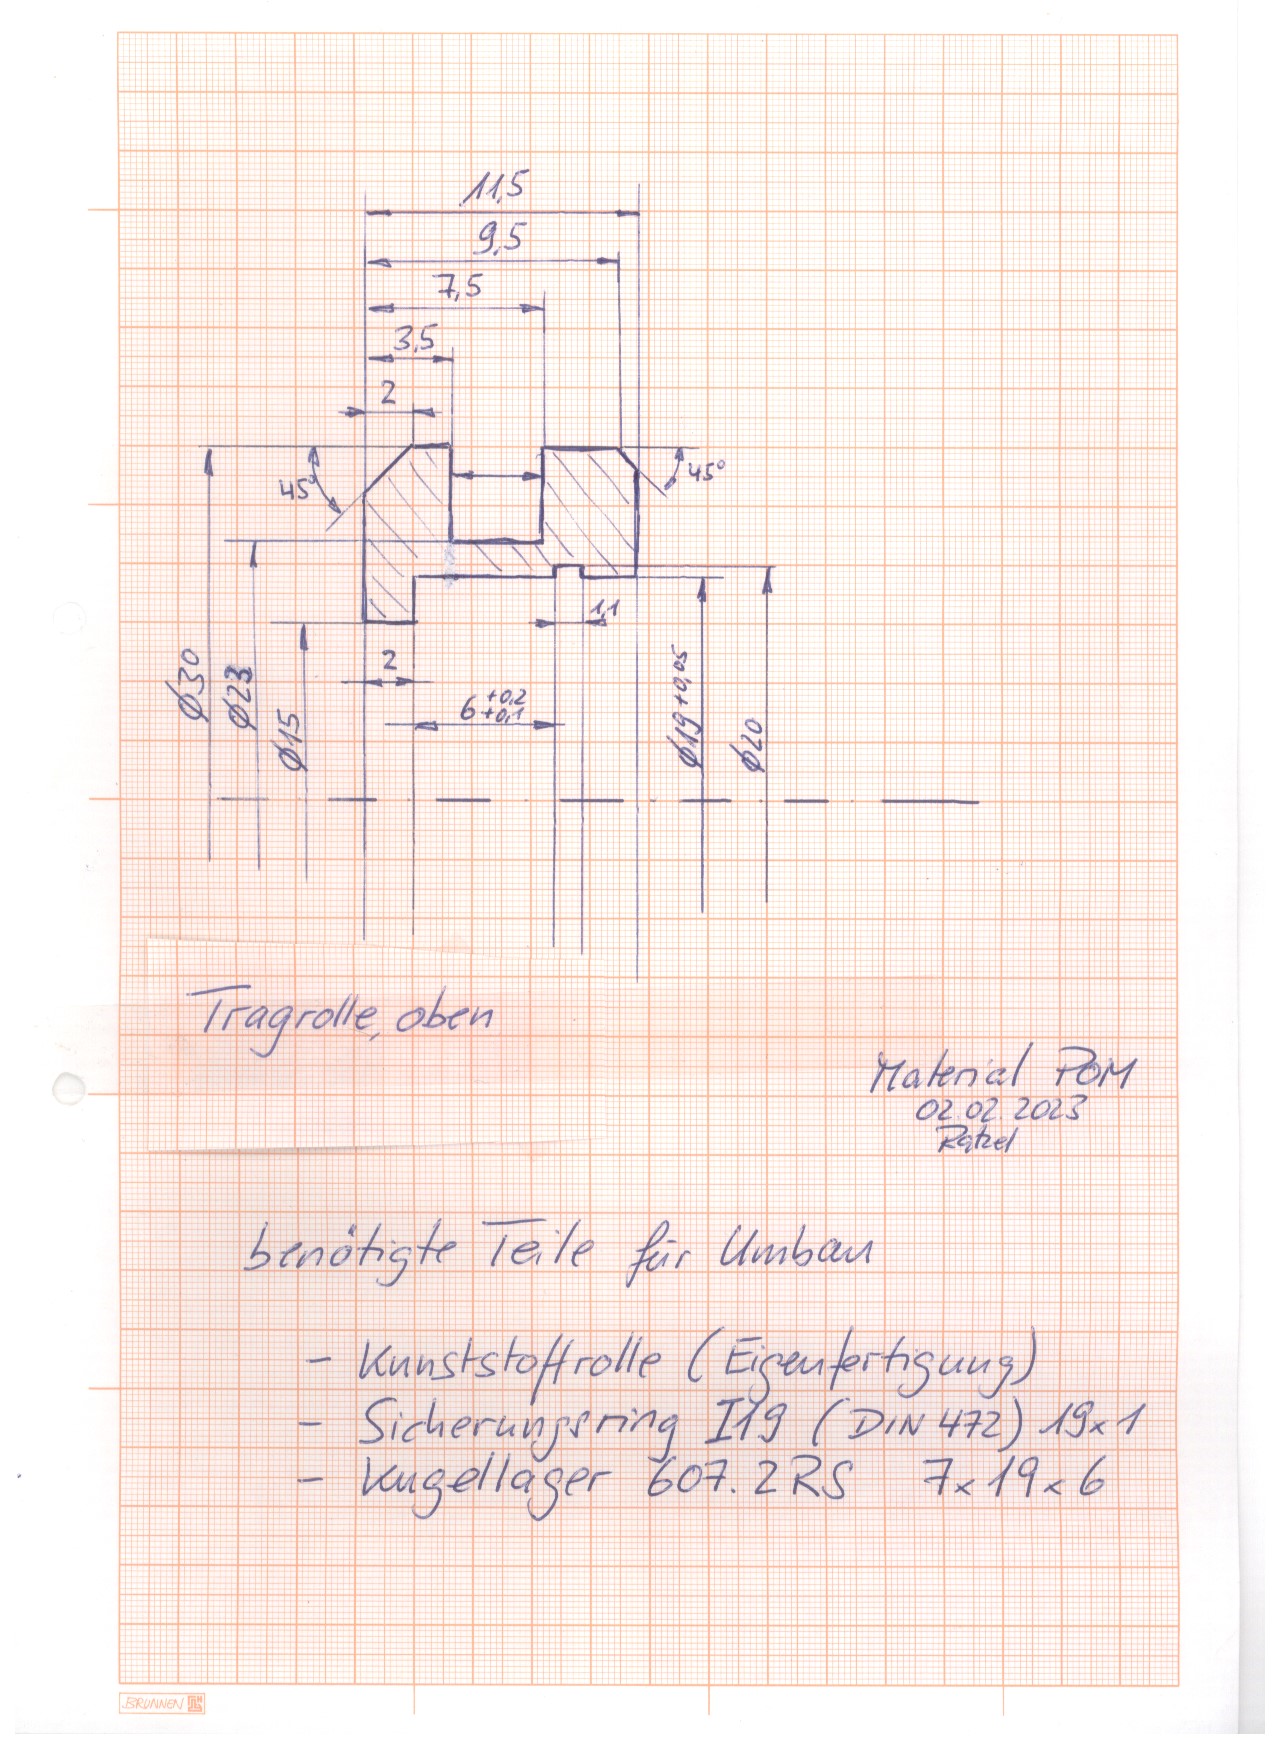 11,5
9,5
7,5
3,5
2
45°
45°
1,1
2
6 +0,2 +0,1
Ø30
Ø23
Ø15
Ø19 +0,05
Ø20
Tragrolle, oben
Material POM
02.02.2023
Ratzel
benötigte Teile für Umbau
- Kunststoffrolle (Eigenfertigung)
- Sicherungsring I19 (DIN 472) 19x1
- Kugellager 607.2RS 7x19x6
BRUNNEN